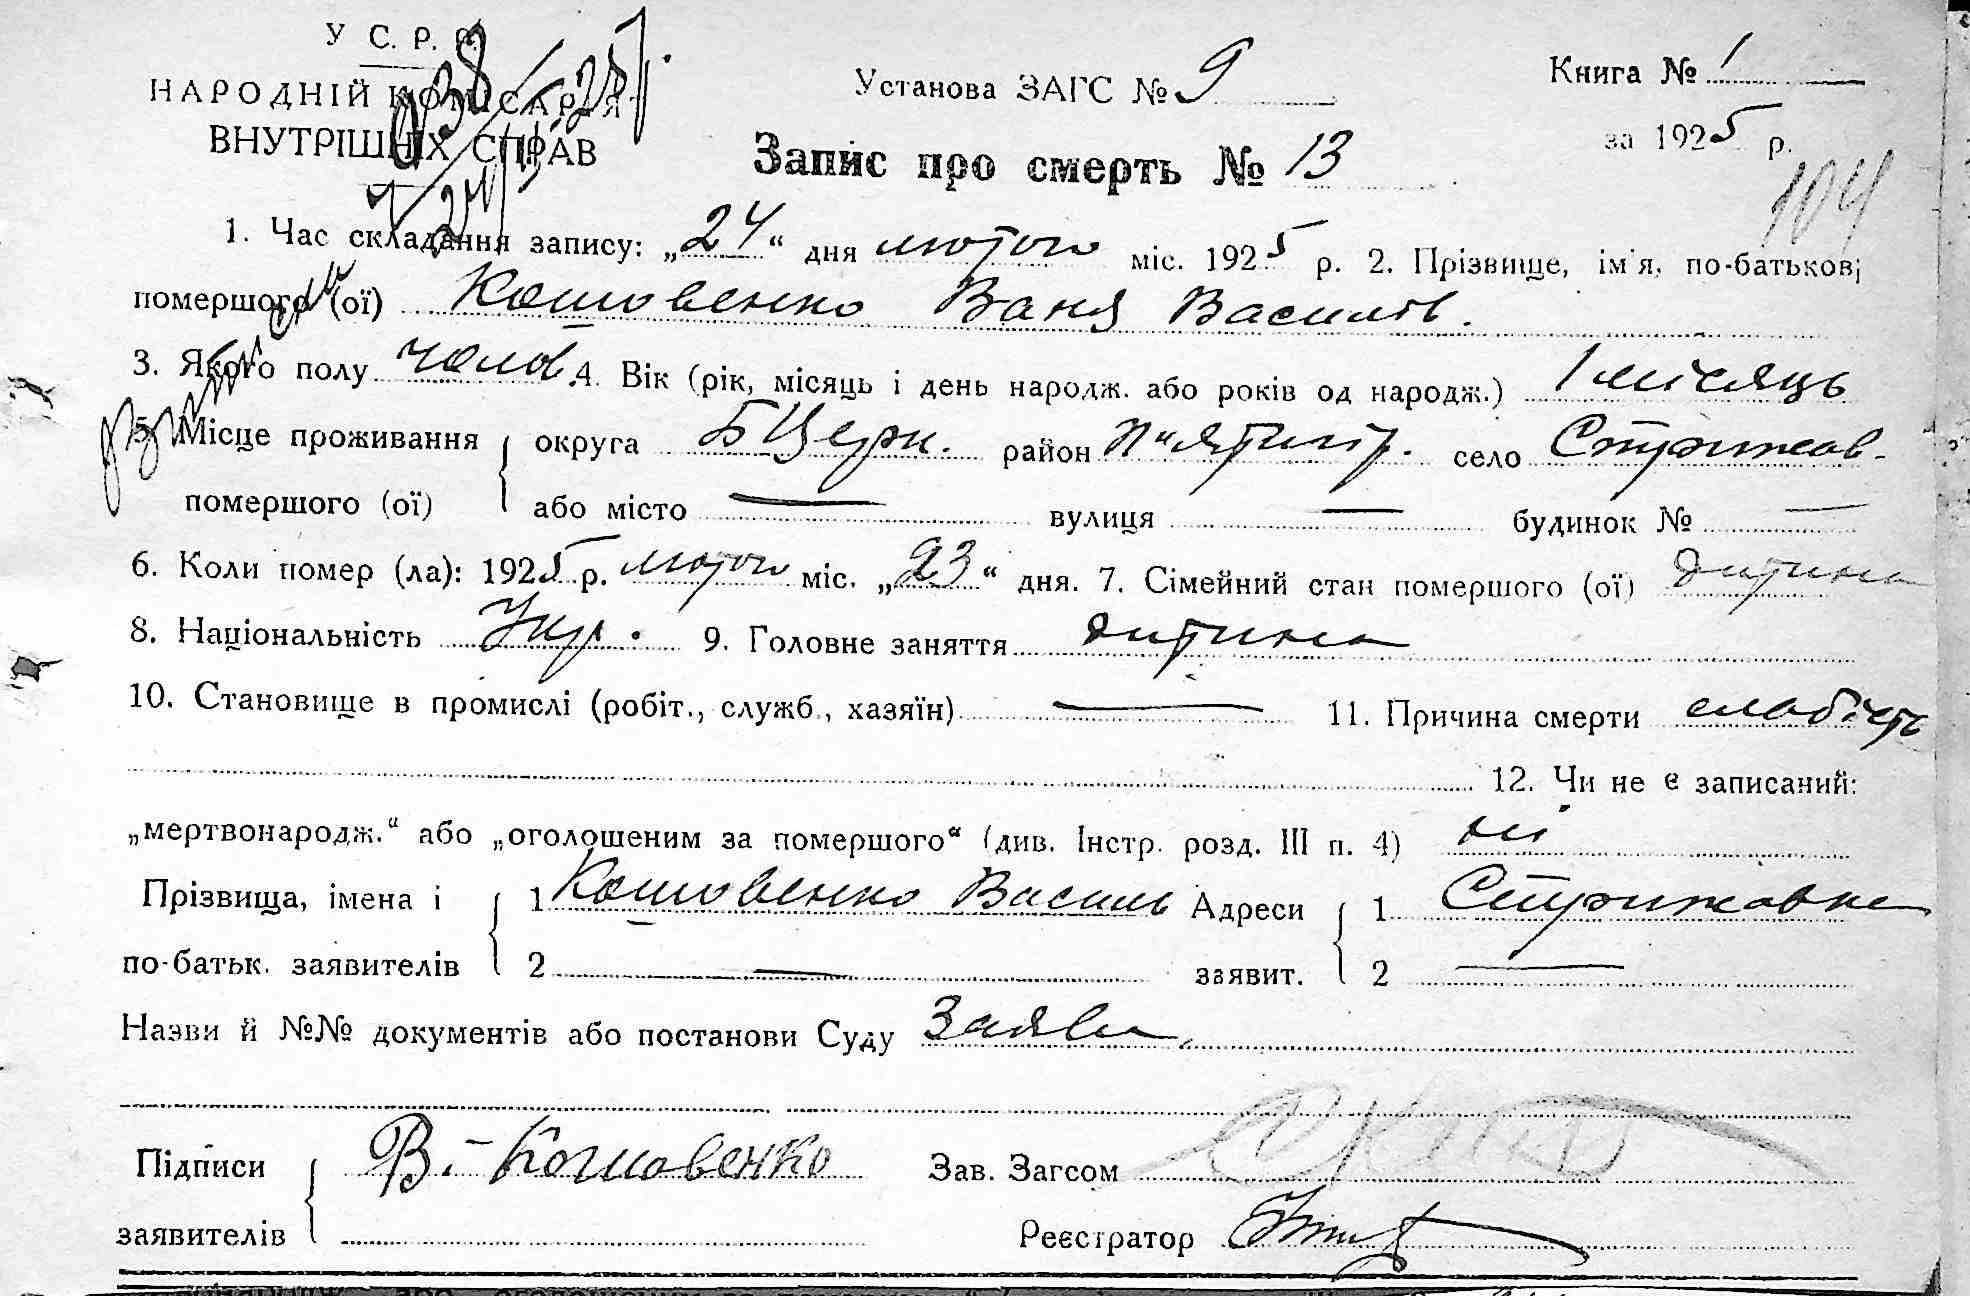 У С. Р. Р.
НАРОДНІЙ КОМІСАРІЯТ
ВНУТРІШНІХ СПРАВ
Установа ЗАГС № 9
Книга № 1
за 1925 р.
Запис про смерть № 13
104
1. Час складання запису: „24“ дня лютого міс. 1925 р. 2. Прізвище, ім'я, по-батькові
помершого (ої) Кошовенко Ваня Василів.
3. Якого полу чолов. 4. Вік (рік, місяць і день народж. або років од народж.) 1 місяць
5. Місце проживання округа БЦерк. район П'ятигір. село Стрижав-
помершого (ої) або місто — вулиця — будинок № —
6. Коли помер (ла): 1925 р. лютого міс. „23“ дня. 7. Сімейний стан помершого (ої) дитина
8. Національність Укр. 9. Головне заняття дитина
10. Становище в промислі (робіт., служб., хазяїн) — 11. Причина смерти слабість
12. Чи не є записаний:
„мертвонародж.“ або „оголошеним за помершого“ (див. Інстр. розд. III п. 4) ні
Прізвища, імена і 1 Кошовенко Василь Адреси 1 Стрижавка
по-батьк. заявителів 2 — заявит. 2 —
Назви й №№ документів або постанови Суду Заява.
Підписи В. Кошовенко Зав. Загсом
заявителів Реєстратор